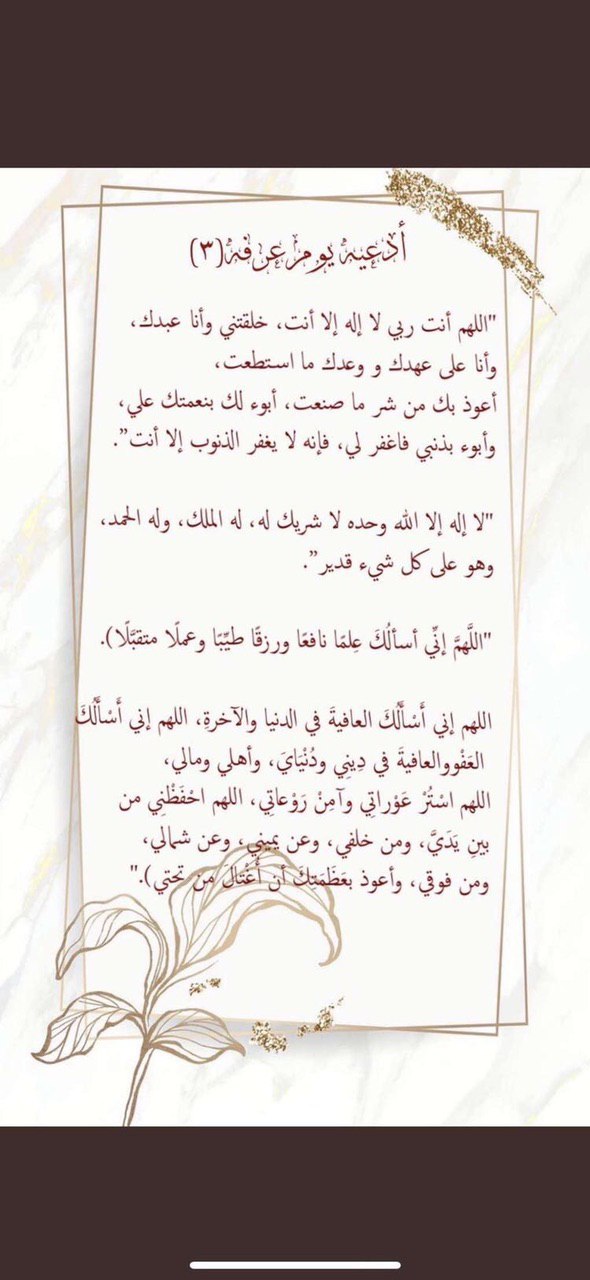 أدعيه يوم عرفه(٣)
"اللهم أنت ربي لا إله إلا أنت، خلقتني وأنا عبدك،
وأنا على عهدك و وعدك ما استطعت،
أعوذ بك من شر ما صنعت، أبوء لك بنعمتك علي،
وأبوء بذنبي فاغفر لي، فإنه لا يغفر الذنوب إلا أنت”.
"لا إله إلا الله وحده لا شريك له، له الملك، وله الحمد،
وهو على كل شيء قدير”.
"اللَّهمَّ إنِّي أسألُكَ عِلمًا نافعًا ورزقًا طيِّبًا وعملًا متقبَّلًا).
اللهم إني أَسْأَلُكَ العافيةَ في الدنيا والآخرةِ، اللهم إني أَسْأَلُكَ
العَفْووالعافيةَ في دِينِي ودُنْيَايَ، وأهلي ومالي،
اللهم اسْتُرْ عَوْراتِي وآمِنْ رَوْعاتِي، اللهم احْفَظْنِي من
بينِ يَدَيَّ، ومن خلفي، وعن يميني، وعن شمالي،
ومن فوقي، وأعوذ بعَظَمَتِكَ أن أُغْتَالَ من تحتي)."